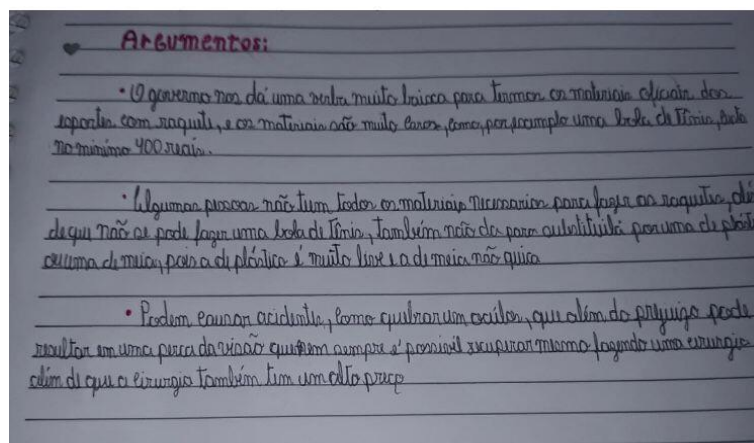 Argumentos:
• O governo nos dá uma verba muito baixa para termos os materiais oficiais dos
esportes com raquete, e os materiais são muito caros, como, por exemplo uma bola de Tênis, custa
no mínimo 400 reais.
• Algumas pessoas não tem todos os materiais necessarios para fazer as raquetes, além
de que não se pode fazer uma bola de Tênis, também não da para substituíla por uma de plást
ou uma de meia, pois a de plástico é muito leve e a de meia não quica
• Podem causar acidentes, como quebrar um óculos, que além do prejuizo pode
resultar em uma perca da visão que nem sempre é possivel recuperar mesmo fazendo uma cirurgia
além de que a cirurgia também tem um alto preço